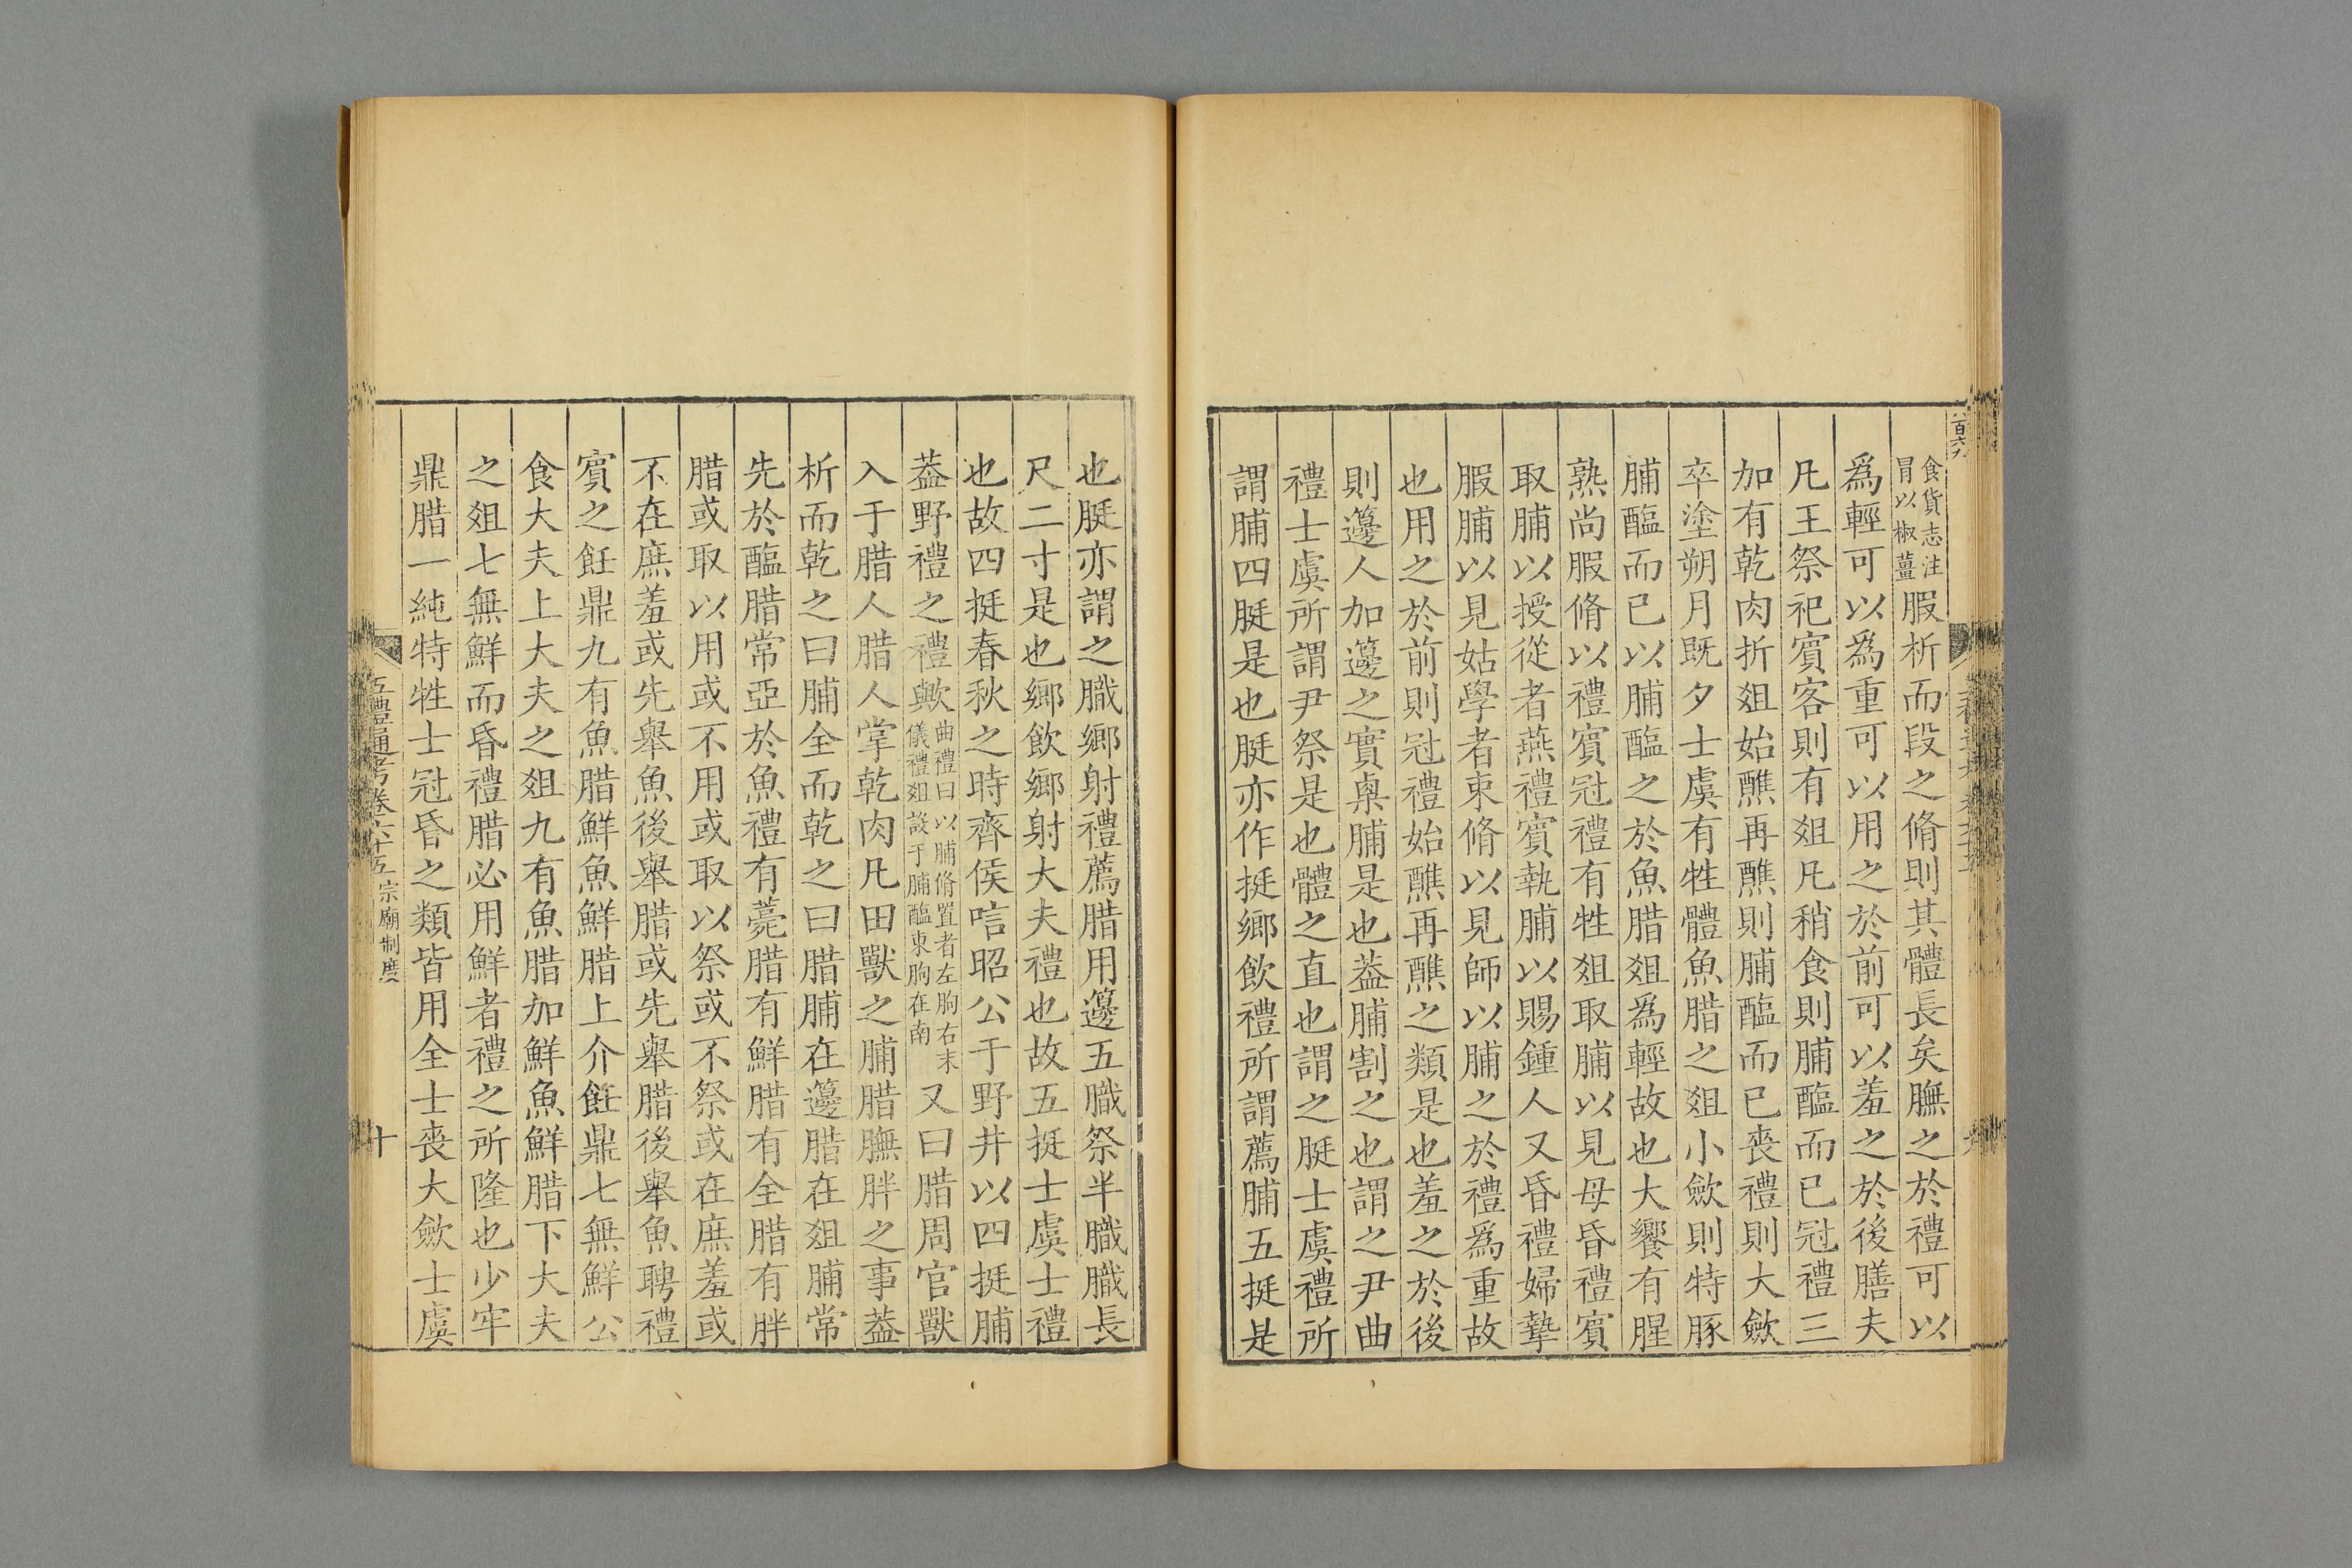 食貨志注
冒以椒薑
腶析而段之脩則其體長矣膴之於禮可以
爲輕可以爲重可以用之於前可以羞之於後膳夫
凡王祭祀賓客則有俎凡稍食則脯醢而已冠禮三
加有乾肉折俎始醮再醮則脯醢而已喪禮則大歛
卒塗朔月既夕士虞有牲體魚腊之俎小歛則特豚
脯醢而已以脯醢之於魚腊俎爲輕故也大饗有腥
熟尚腶脩以禮賓冠禮有牲俎取脯以見母昏禮賓
取脯以授從者燕禮賓執脯以賜鍾人又昏禮婦摯
腶脯以見姑學者束脩以見師以脯之於禮爲重故
也用之於前則冠禮始醮再醮之類是也羞之於後
則籩人加籩之實㮚脯是也葢脯割之也謂之尹曲
禮士虞所謂尹祭是也體之直也謂之脡士虞禮所
謂脯四脡是也脡亦作挺鄉飲禮所謂薦脯五挺是
也脡亦謂之膱鄉射禮薦腊用籩五膱祭半膱膱長
尺二寸是也鄉飲鄉射大夫禮也故五挺士虞士禮
也故四挺春秋之時齊侯唁昭公于野井以四挺脯
葢野禮之禮歟
曲禮曰以脯脩置者左朐右末
儀禮俎設于脯醢東朐在南
又曰腊周官獸
入于腊人腊人掌乾肉凡田獸之脯腊膴胖之事葢
析而乾之曰脯全而乾之曰腊脯在籩腊在俎脯常
先於醢腊常亞於魚禮有薧腊有鮮腊有全腊有胖
腊或取以用或不用或取以祭或不祭或在庶羞或
不在庶羞或先舉魚後舉腊或先舉腊後舉魚聘禮
賓之飪鼎九有魚腊鮮魚鮮腊上介飪鼎七無鮮公
食大夫上大夫之俎九有魚腊加鮮魚鮮腊下大夫
之俎七無鮮而昏禮腊必用鮮者禮之所隆也少牢
鼎腊一純特牲士冠昏之類皆用全士喪大歛士虞
五禮通考卷六十五 宗廟制度
十